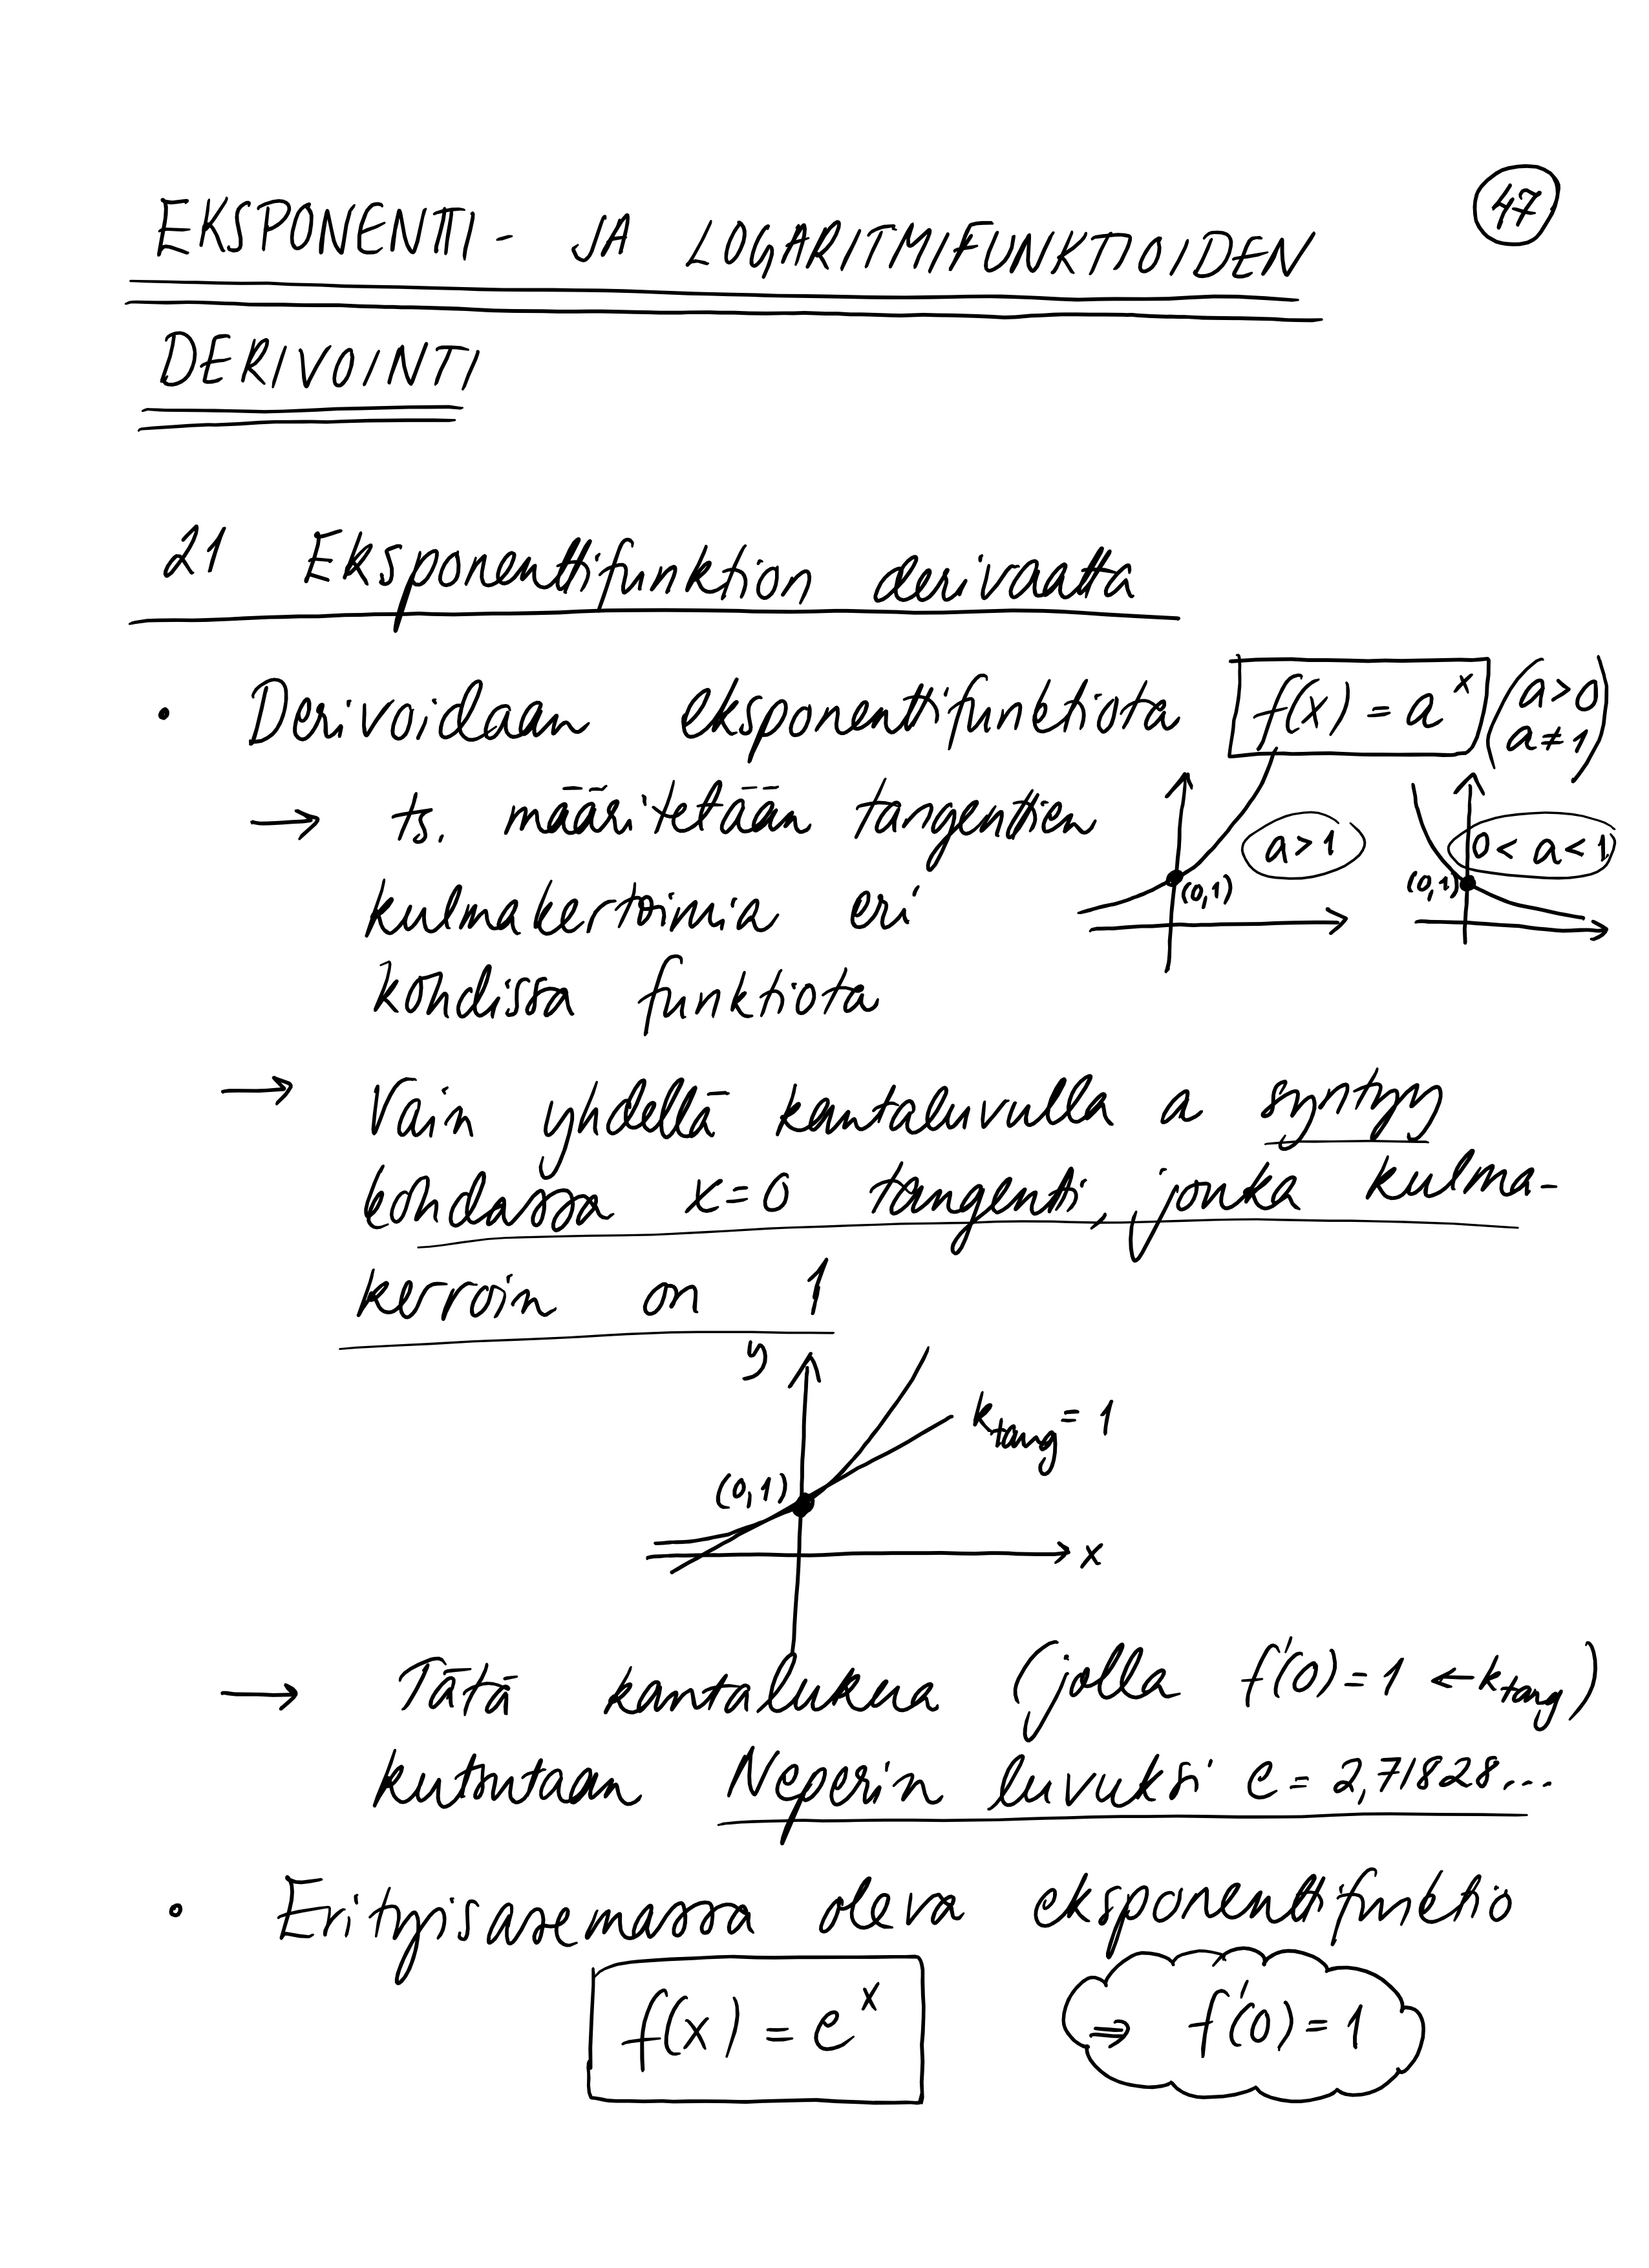 47
EKSPONENTTI- JA LOGARITMIFUNKTIOIDEN
DERIVOINTI
21 Eksponenttifunktion derivaatta
• Derivoidaan eksponenttifunktiota f(x) = a^x (a>0
a≠1)
→ ts. määritetään tangenttien
kulmakertoimia eri
kohdissa funktiota
a>1
(0,1)
0<a<1
(0,1)
→ Vain yhdellä kantaluvulla a syntyy
kohdassa x=0 tangentti, jonka kulma-
kerroin on 1
y
k_tang = 1
(0,1)
x
→ Tätä kantalukua (jolla f'(0)=1 ← k_tang)
kutsutaan Neperin luvuksi e = 2,71828...
• Erityisasemassa oleva eksponenttifunktio
f(x) = e^x ⇒ f'(0) = 1